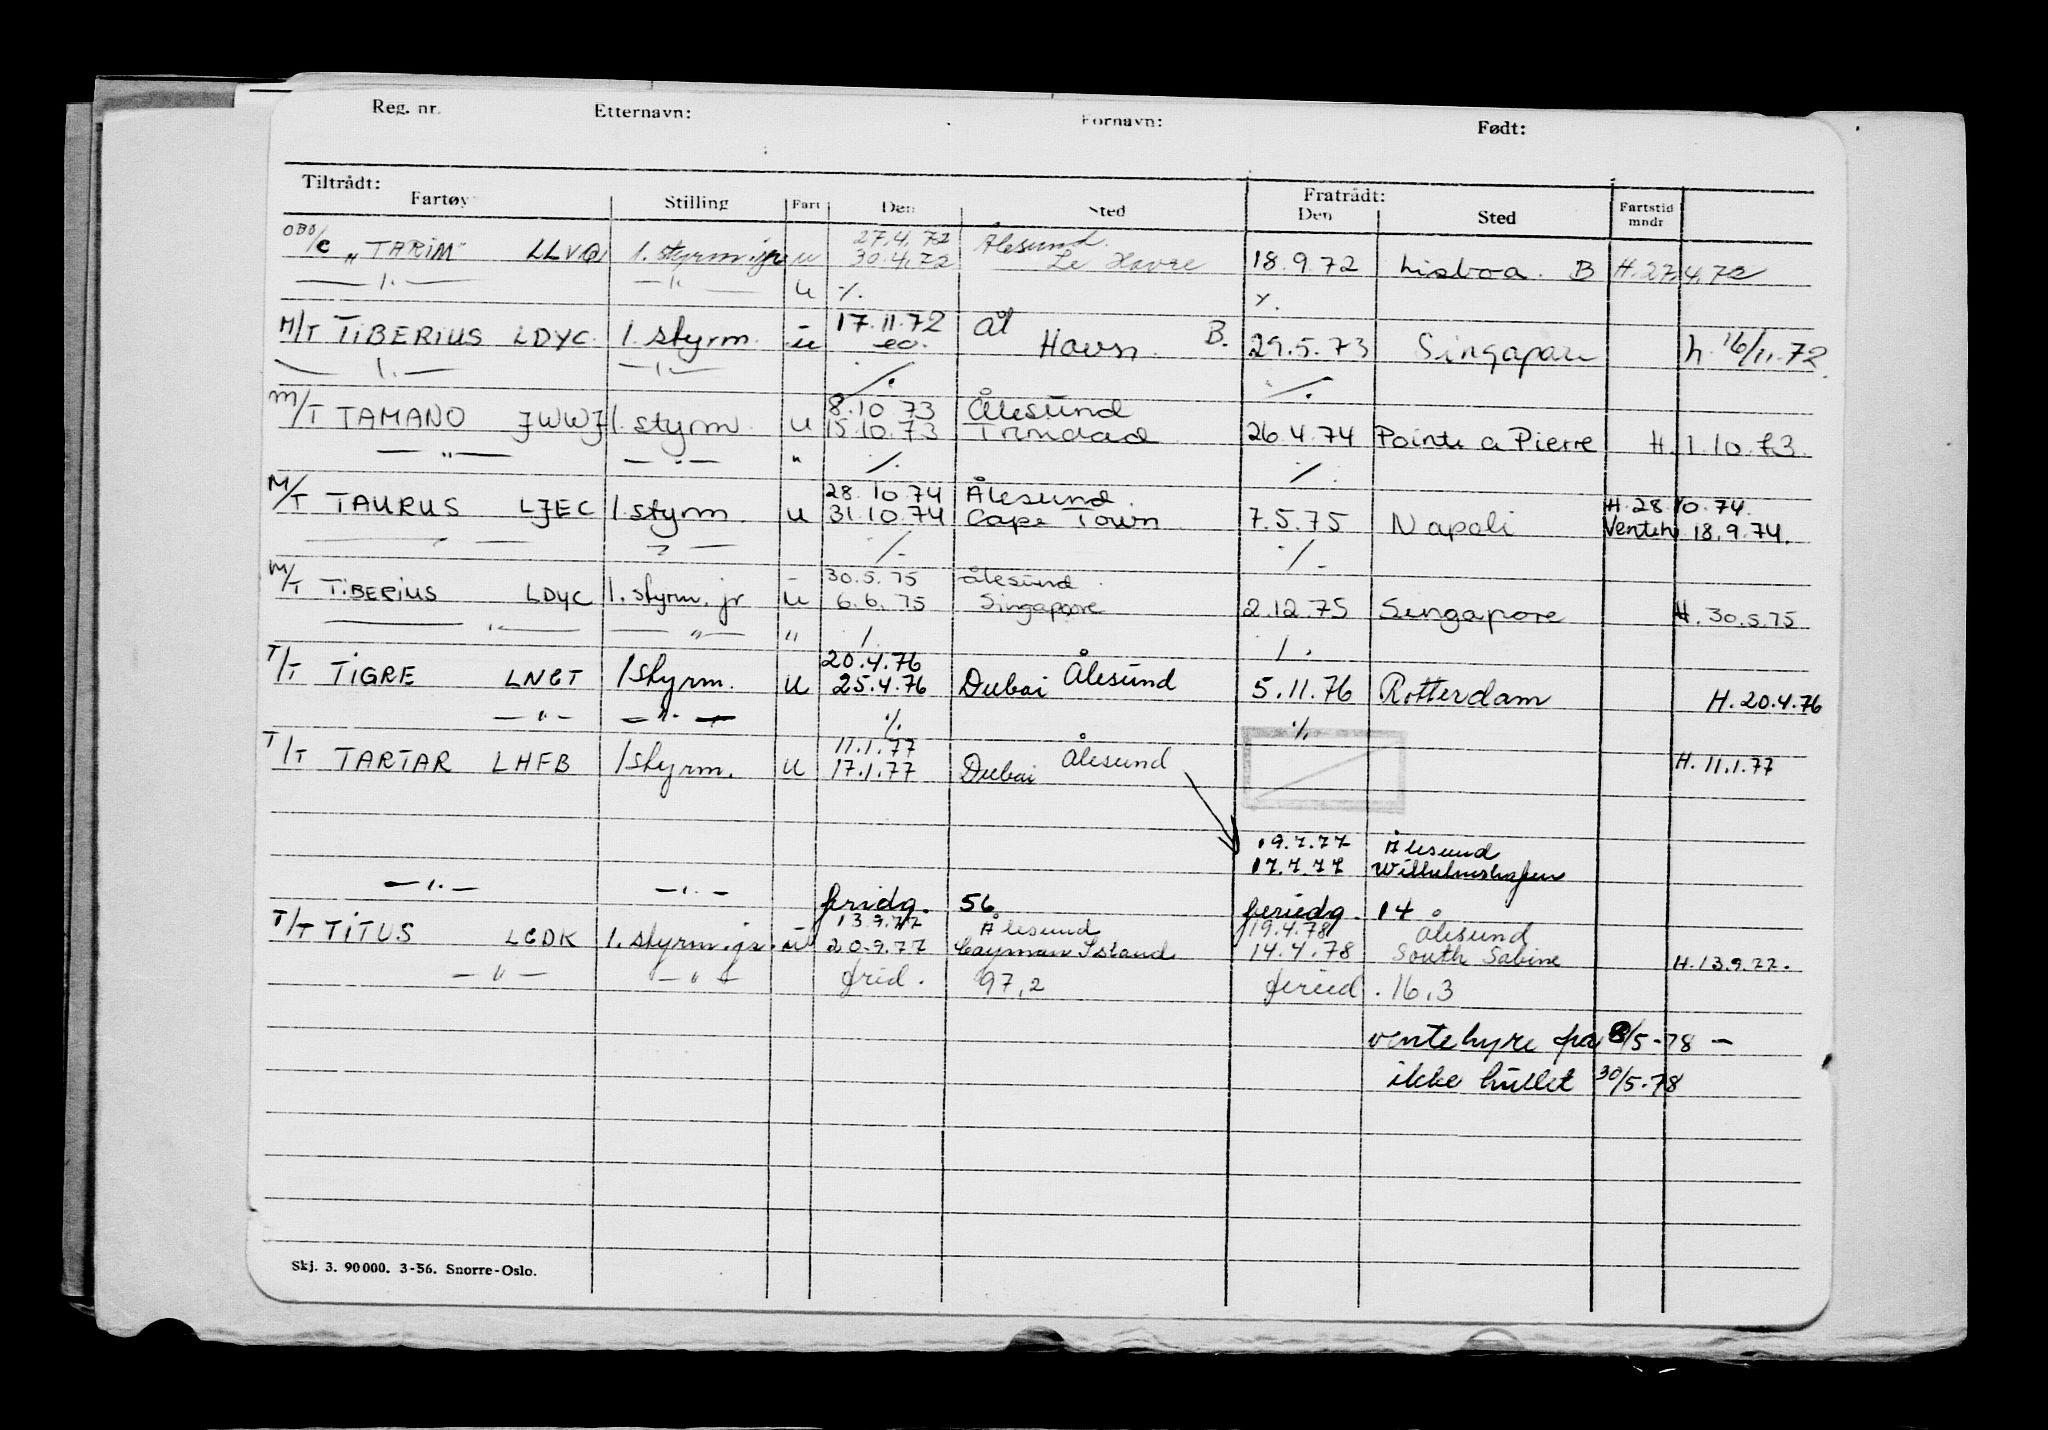 Reg. nr. Etternavn: Fornavn: Født:
Tiltrådt: Fratrådt:
Fartøy Stilling Fart Den Sted Den Sted Fartstid mndr
27.4.72 Ålesund
OBO/C "TARIM" LLVQ 1. styrm. jr u 30.4.72 Le Havre 18.9.72 Lisboa. B H. 27.4.72
— " — — " — u %. %.
17.11.72 Ål
M/T TIBERIUS LDYC. 1. styrm. u eo. Havn. B. 29.5.73 Singapore h. 16/11.72.
— " — — " — %. %.
8.10.73 Ålesund
M/T TAMANO JWWJ 1. styrm. u 15.10.73 Trinidad 26.4.74 Pointe a Pierre H. 1.10.73.
— " — — " — " %. %.
28.10.74 Ålesund. H. 28.10.74.
M/T TAURUS LJEC 1. styrm. u 31.10.74 Cape Town 7.5.75 Napoli Venteh. 18.9.74.
— " — — " — %. %.
30.5.75 Ålesund.
M/T TIBERIUS LDYC 1. styrm. jr u 6.6.75 Singapore 2.12.75 Singapore H. 30.5.75
— " — — " — " %. %.
20.4.76 Ålesund
T/T TIGRE LNGT 1 styrm. u 25.4.76 Dubai 5.11.76 Rotterdam H. 20.4.76
— " — — " — %. %.
11.1.77 Ålesund
T/T TARTAR LHFB 1 styrm. u 17.1.77 Dubai H. 11.1.77
19.7.77 Ålesund
17.7.77 Wilhelmshafen
— " — — " — fridg. 56 feriedg. 14
13.9.77 Ålesund 19.4.78 Ålesund
T/T TITUS LCDK 1. styrm. jr. u 20.9.77 Cayman Island 14.4.78 South Sabine H. 13.9.77.
— " — — " — frid. 97,2 feried. 16,3
ventehyre fra 8/5-78 —
ikke hullet 30/5.78
Skj. 3. 90000. 3-56. Snorre-Oslo.